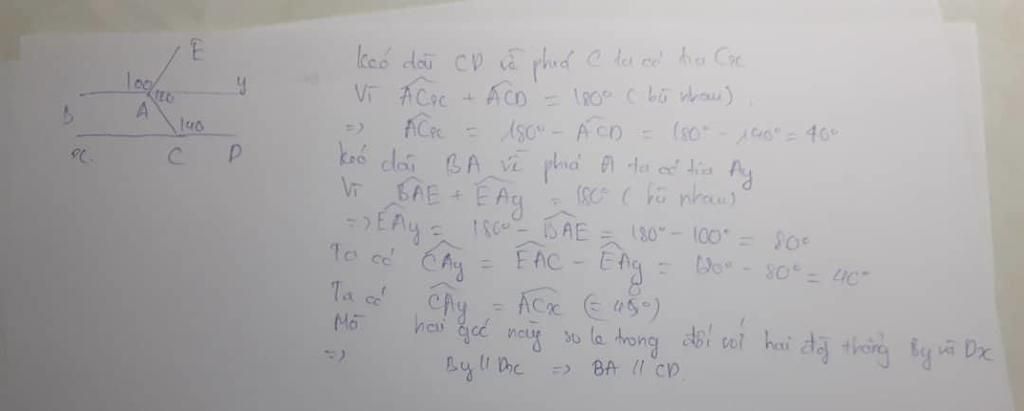 E
100
120
y
B
A
140
x
C
D
Kéo dài CD về phía C ta có tia Cx
Vì ACx + ACD = 180° (bù nhau)
=> ACx = 180° - ACD = 180° - 140° = 40°
Kéo dài BA về phía A ta có tia Ay
Vì BAE + EAy = 180° (bù nhau)
=> EAy = 180° - BAE = 180° - 100° = 80°
Ta có CAy = EAC - EAy = 120° - 80° = 40°
Ta có CAy = ACx (= 45°)
Mà hai góc này so le trong đối với hai đg thẳng By và Dx
=> By // Dx => BA // CD.